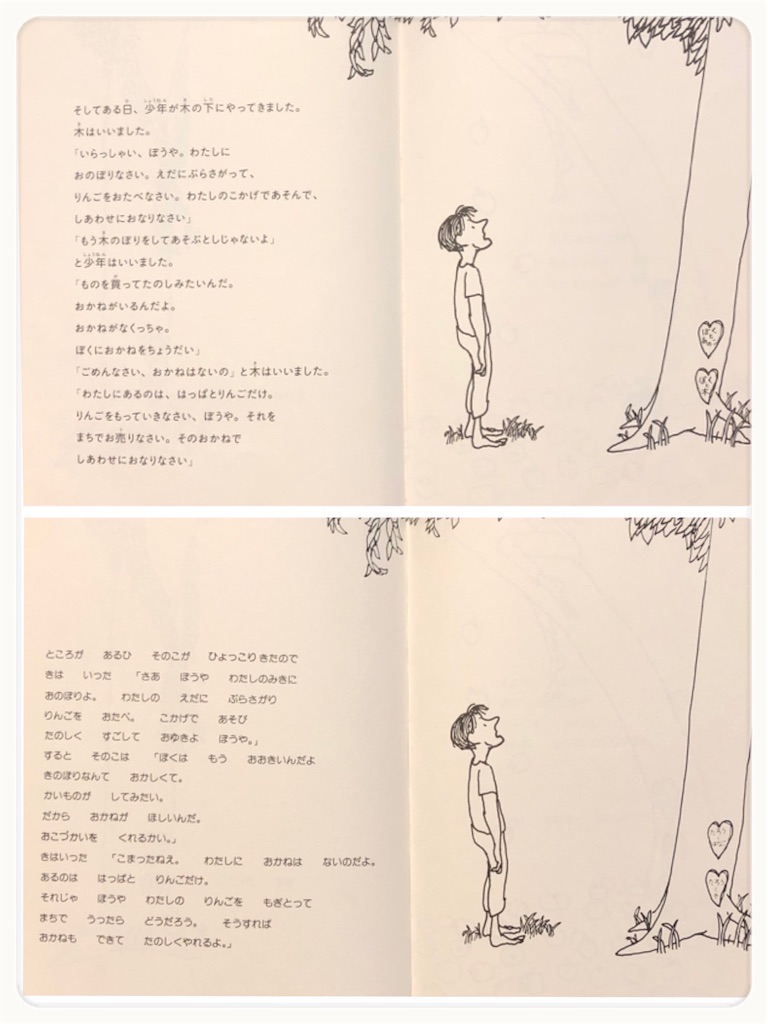 そしてある日、少年が木の下にやってきました。
木はいいました。
「いらっしゃい、ぼうや。わたしに
おのぼりなさい。えだにぶらさがって、
りんごをおたべなさい。わたしのこかげであそんで、
しあわせにおなりなさい」
「もう木のぼりをしてあそぶとしじゃないよ」
と少年はいいました。
「ものを買ってたのしみたいんだ。
おかねがいるんだよ。
おかねがなくっちゃ。
ぼくにおかねをちょうだい」
「ごめんなさい、おかねはないの」と木はいいました。
「わたしにあるのは、はっぱとりんごだけ。
りんごをもっていきなさい、ぼうや。それを
まちでお売りなさい。そのおかねで
しあわせにおなりなさい」
ぼく
と
ぼく
と
木
ところが あるひ そのこが ひょっこり きたので
きは いった 「さあ ぼうや わたしのみきに
おのぼりよ。 わたしの えだに ぶらさがり
りんごを おたべ。 こかげで あそび
たのしく すごして おゆきよ ぼうや。」
すると そのこは 「ぼくは もう おおきいんだよ
きのぼりなんて おかしくて。
かいものが してみたい。
だから おかねが ほしいんだ。
おこづかいを くれるかい。」
きはいった 「こまったねえ。 わたしに おかねは ないのだよ。
あるのは はっぱと りんごだけ。
それじゃ ぼうや わたしの りんごを もぎとって
まちで うったら どうだろう。 そうすれば
おかねも できて たのしくやれるよ。」
たろう
はなこ
たろう